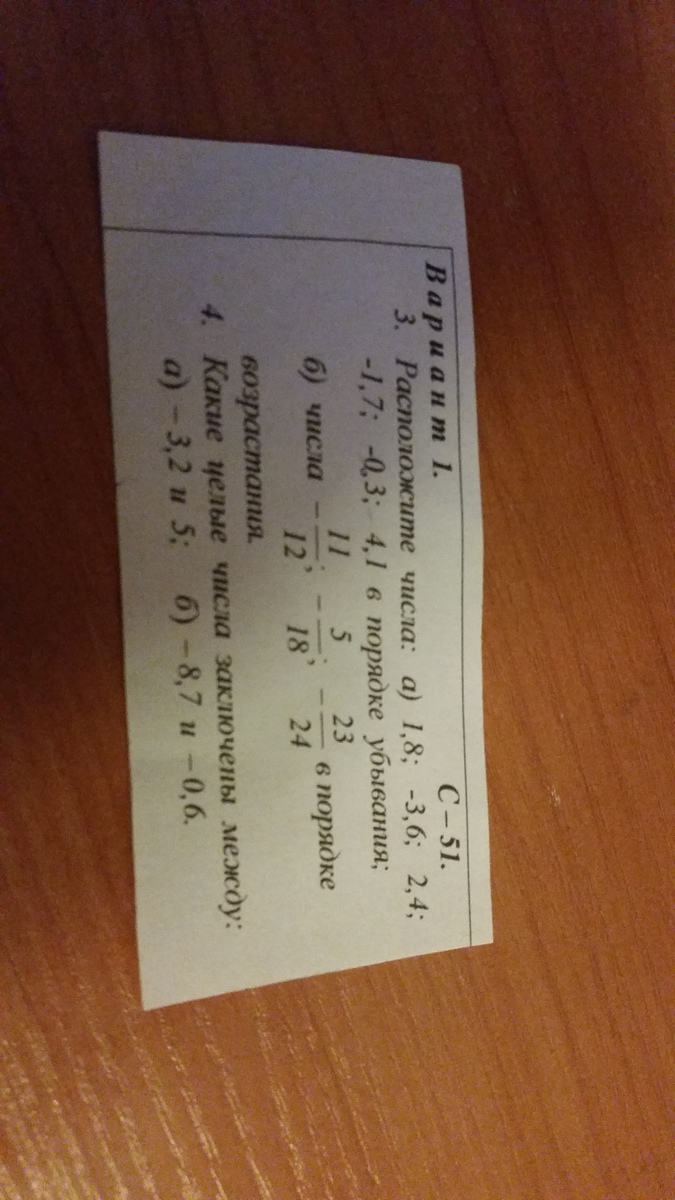 С – 51.
Вариант 1.
3. Расположите числа: а) 1,8; -3,6; 2,4;
-1,7; -0,3; 4,1 в порядке убывания;
б) числа −11/12; −5/18; −23/24 в порядке
возрастания.
4. Какие целые числа заключены между:
а) – 3,2 и 5; б) – 8,7 и – 0,6.